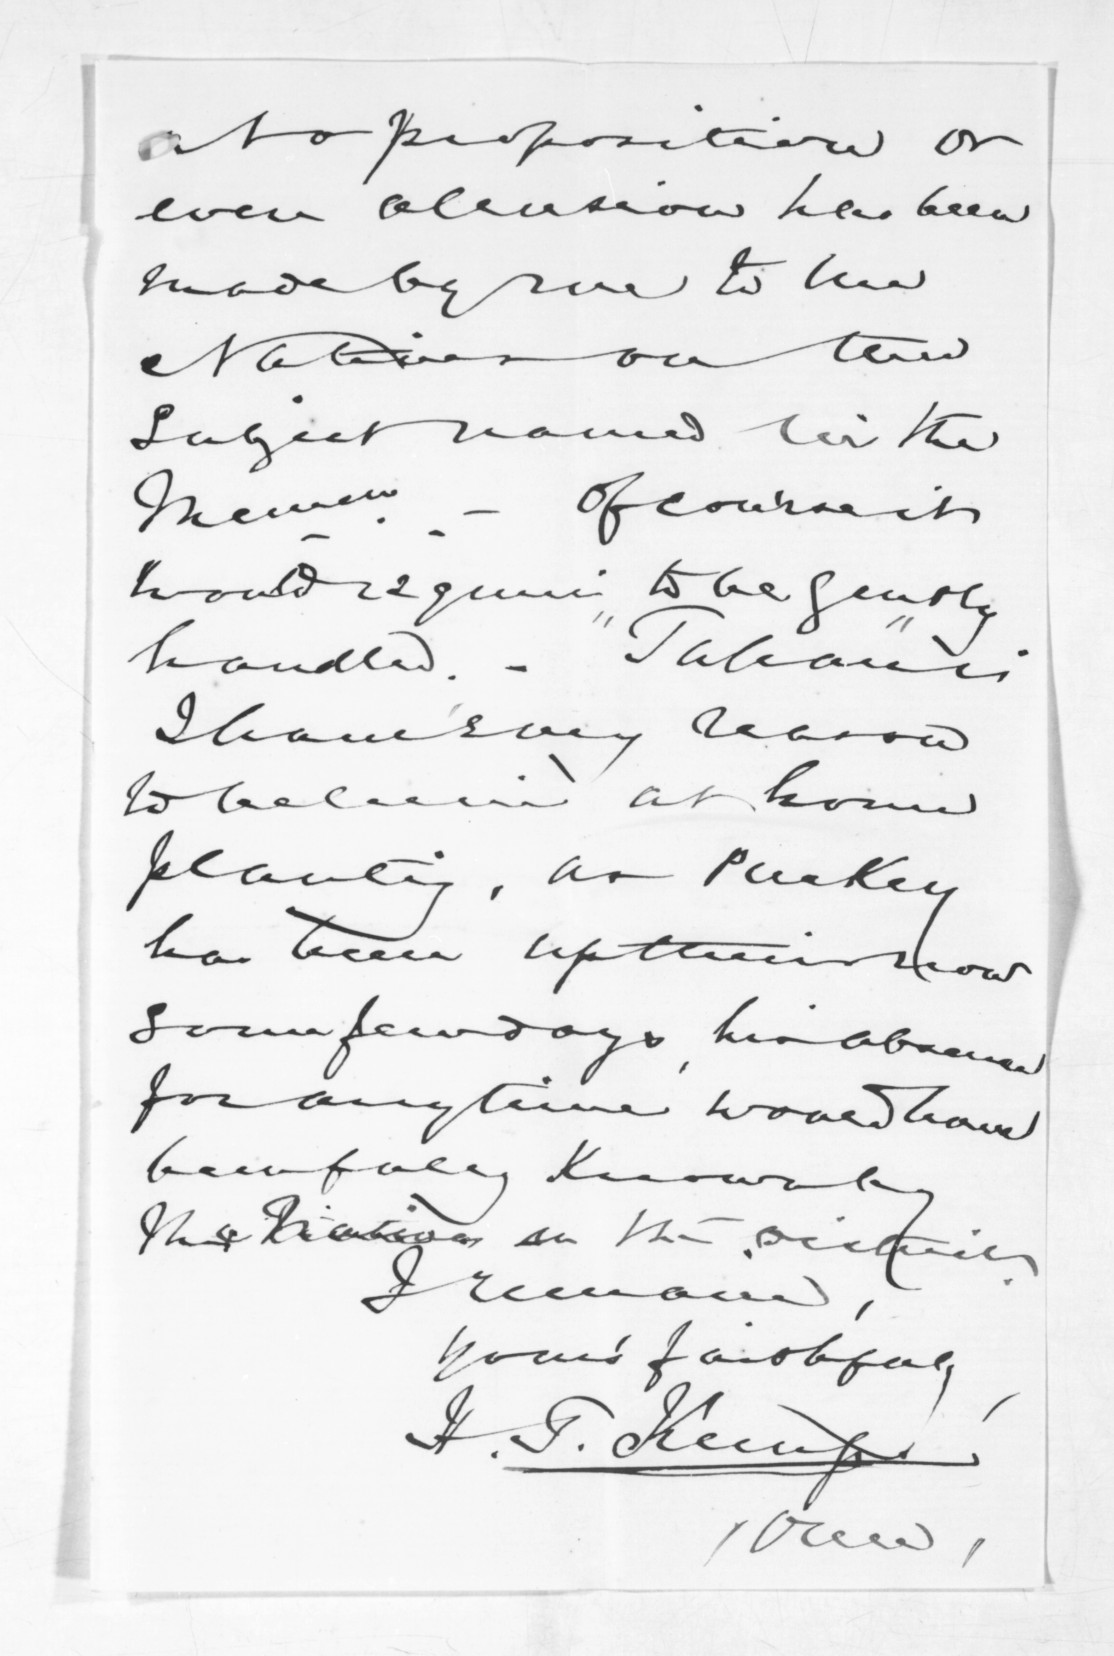 No proposition or
even allusion has been
made by me to the
Natives on the
subject named in the
Memo. - Of course it
would require to be gently
handled. - "Tawhao" is
I have every reason
to believe at home
planting, as Puckey
has been up there now
some few days, his absence
for any time would have
been fully known by
the Natives in the district.
I remain,
yours faithfully,
H. T. Kemp
(Over)